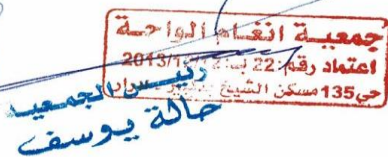 جمعيــة انغــام الواحــة
اعتماد رقم: 22 ب: 2013/1
حي 135 مسكن الشيخ
رئيس الجمعية
حالة يوسف